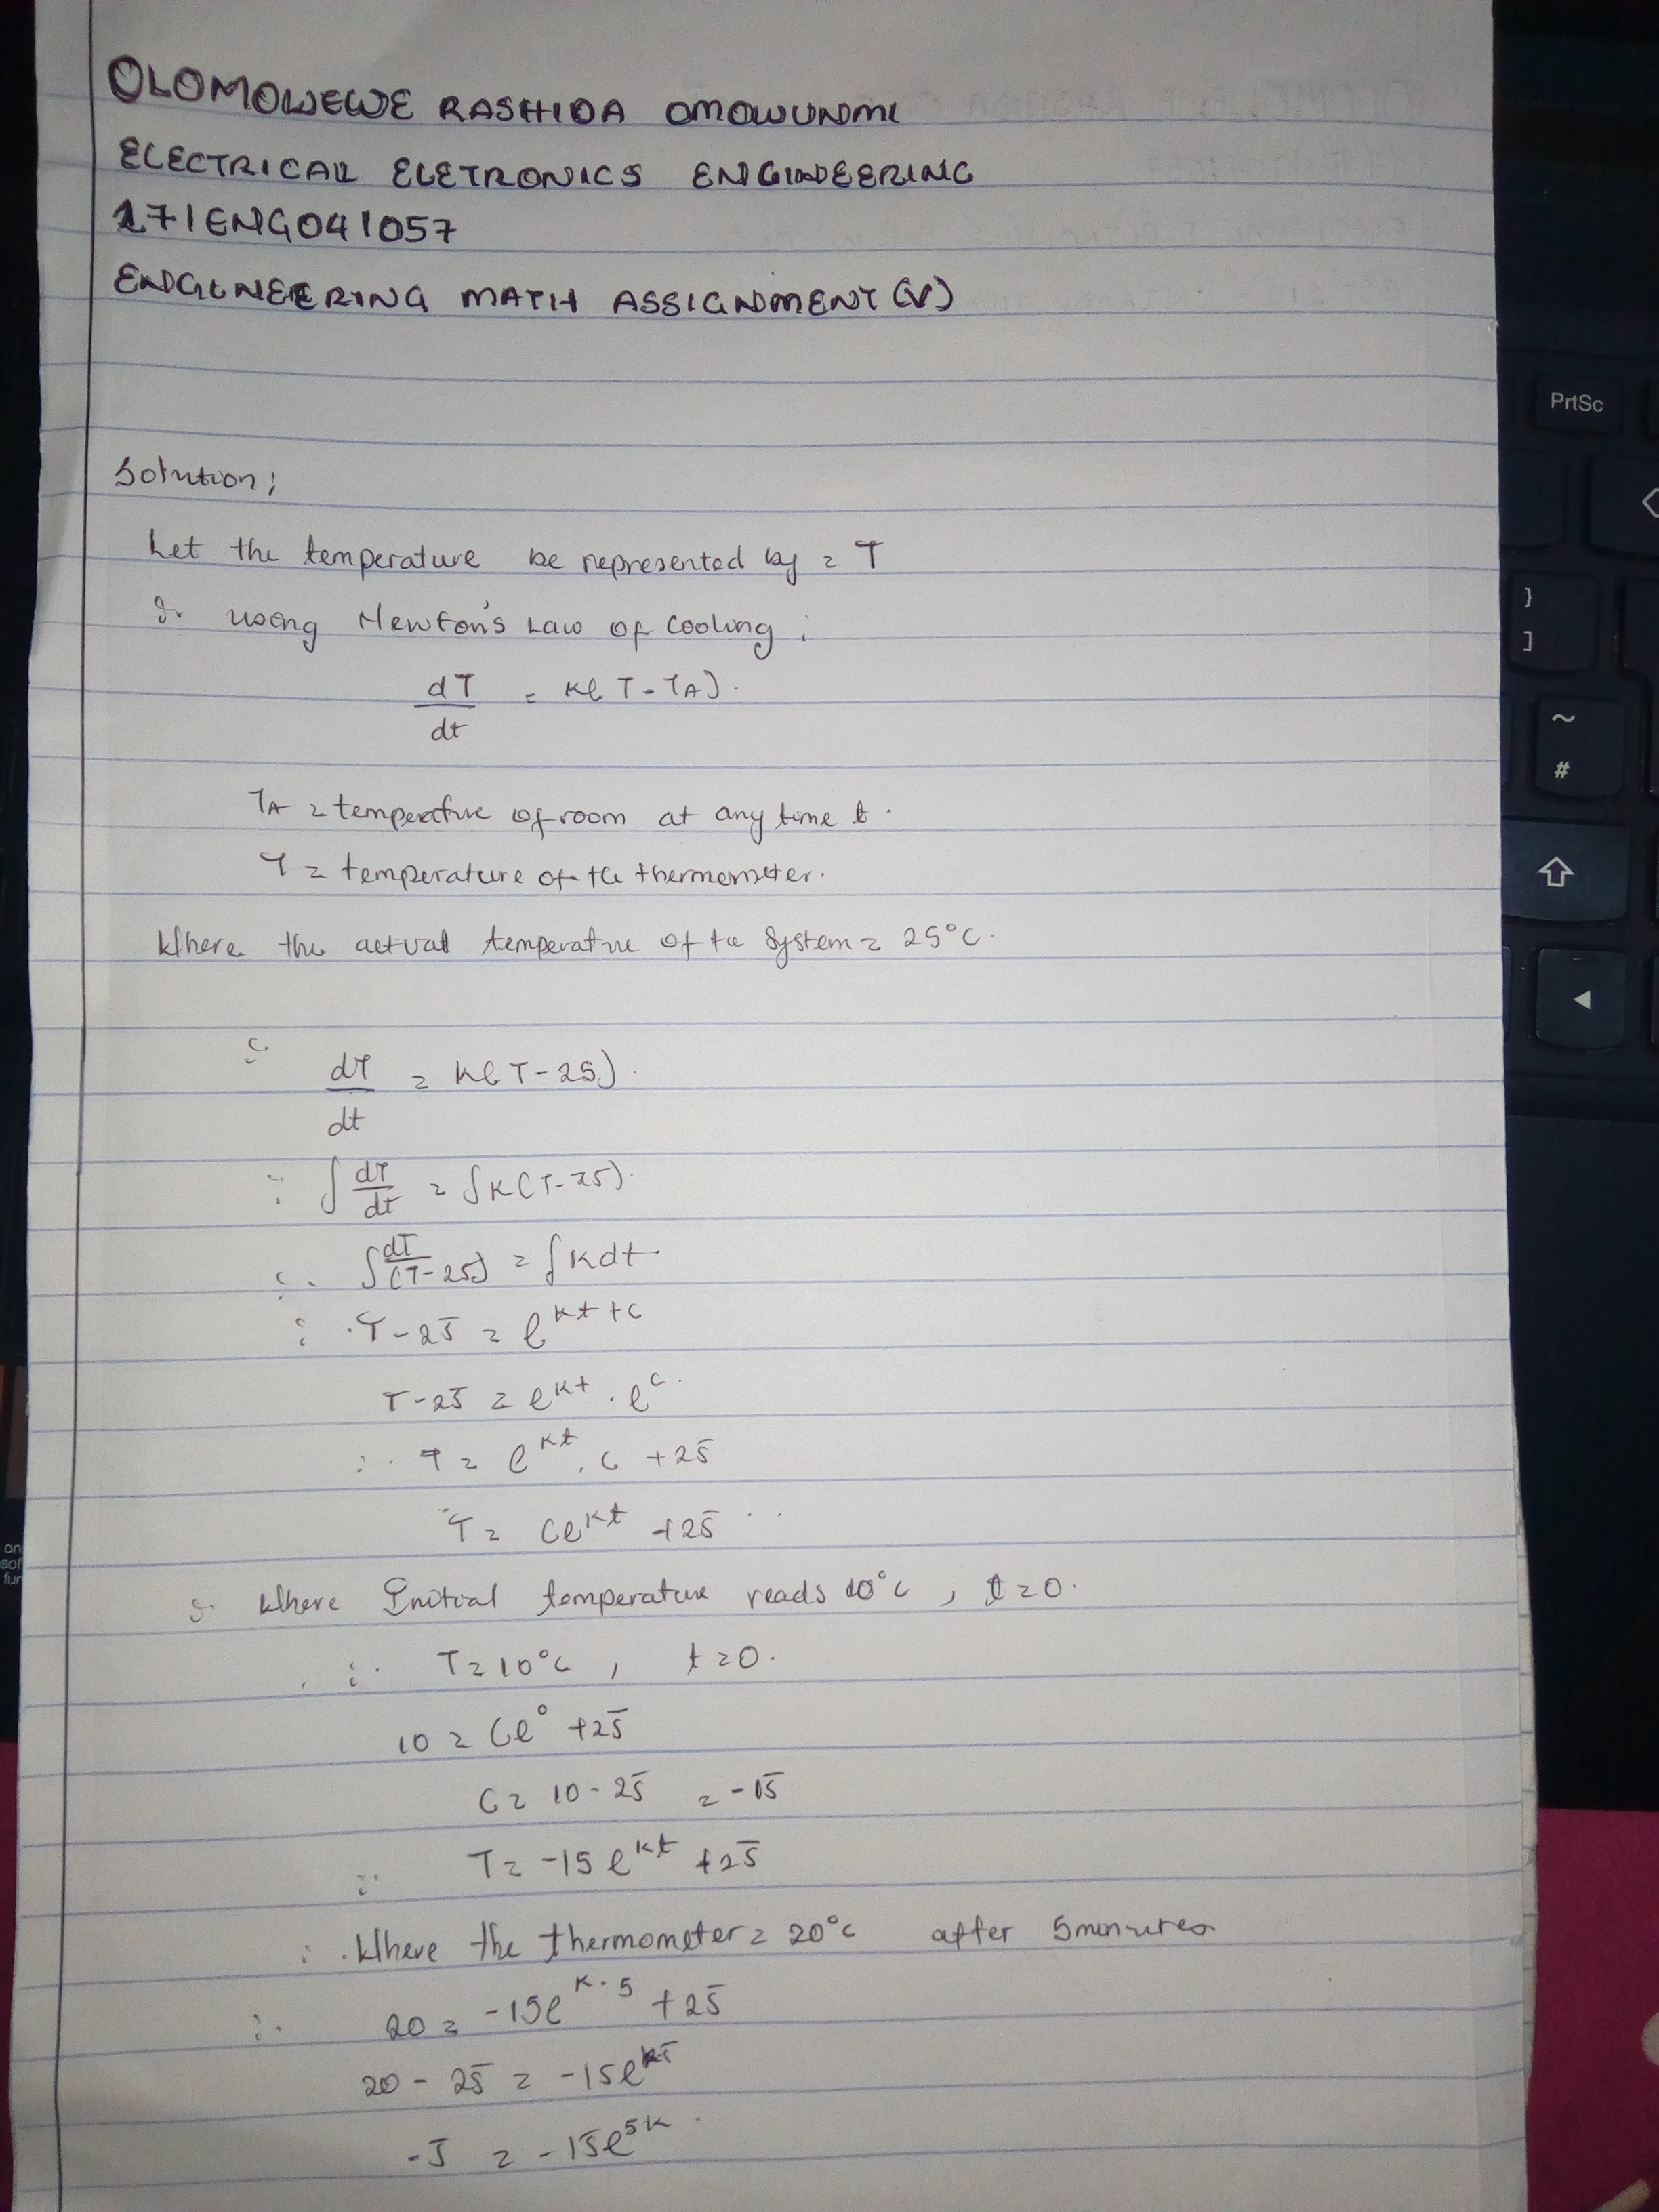 OLOMOWEWE RASHIDA OMOWUNMI
ELECTRICAL ELETRONICS ENGINEERING
171ENG041057
ENGINEERING MATH ASSIGNMENT (V)
PrtSc
Solution;
Let the temperature be represented by = T
∴ using Newton's Law of Cooling;
dT/dt = K(T-TA).
TA = temperature of room at any time t.
T = temperature of the thermometer.
Where the actual temperature of the system = 25°C.
∴ dT/dt = K(T-25).
∴ ∫ dT/dt = ∫K(T-25).
∴ ∫ dT/(T-25) = ∫Kdt
∴ T-25 = e^(Kt+c)
T-25 = e^Kt . e^c.
∴ T = e^Kt . C + 25
T = Ce^Kt + 25
∴ Where Initial temperature reads 10°C, t=0.
∴ T = 10°C, t=0.
10 = Ce^0 + 25
C = 10-25 = -15
∴ T = -15e^Kt + 25
∴ Where the thermometer = 20°C after 5minutes
∴ 20 = -15e^K.5 + 25
20 - 25 = -15e^K5
-5 = -15e^5K
}
]
~
#
on
sof
fur